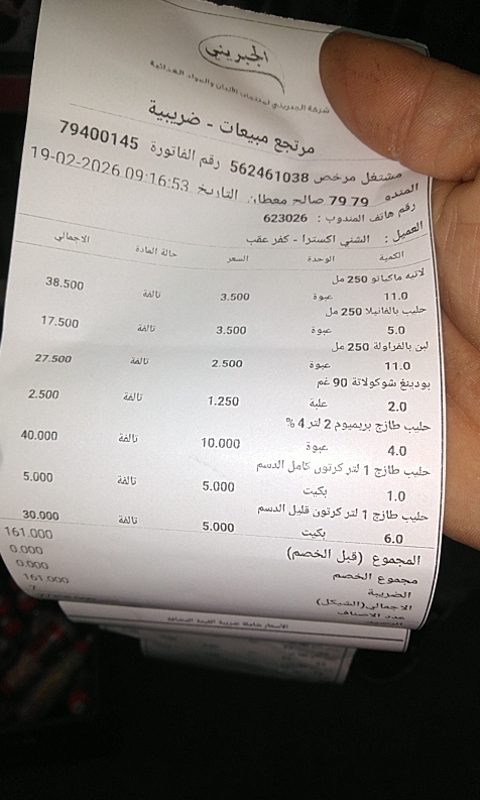 الجبريني
شركة الجبريني لمنتجات الألبان والمواد الغذائية
مرتجع مبيعات - ضريبية
مشتغل مرخص 562461038 رقم الفاتورة 79400145
المندو 79 79 صالح معطان التاريخ 19-02-2026 09:16:53
رقم هاتف المندوب : 623026
العميل : الشني اكسترا - كفر عقب
الكمية الوحدة السعر حالة المادة الاجمالي
لاتيه ماكياتو 250 مل
11.0 عبوة 3.500 تالفة 38.500
حليب بالفانيلا 250 مل
5.0 عبوة 3.500 تالفة 17.500
لبن بالفراولة 250 مل
11.0 عبوة 2.500 تالفة 27.500
بودينغ شوكولاتة 90 غم
2.0 علبة 1.250 تالفة 2.500
حليب طازج بريميوم 2 لتر 4 %
4.0 عبوة 10.000 تالفة 40.000
حليب طازج 1 لتر كرتون كامل الدسم
1.0 بكيت 5.000 تالفة 5.000
حليب طازج 1 لتر كرتون قليل الدسم
6.0 بكيت 5.000 تالفة 30.000
المجموع (قبل الخصم) 161.000
مجموع الخصم 0.000
الضريبة 0.000
الاجمالي(الشيكل) 161.000
عدد الاصناف 7
الاسعار شاملة ضريبة القيمة المضافة